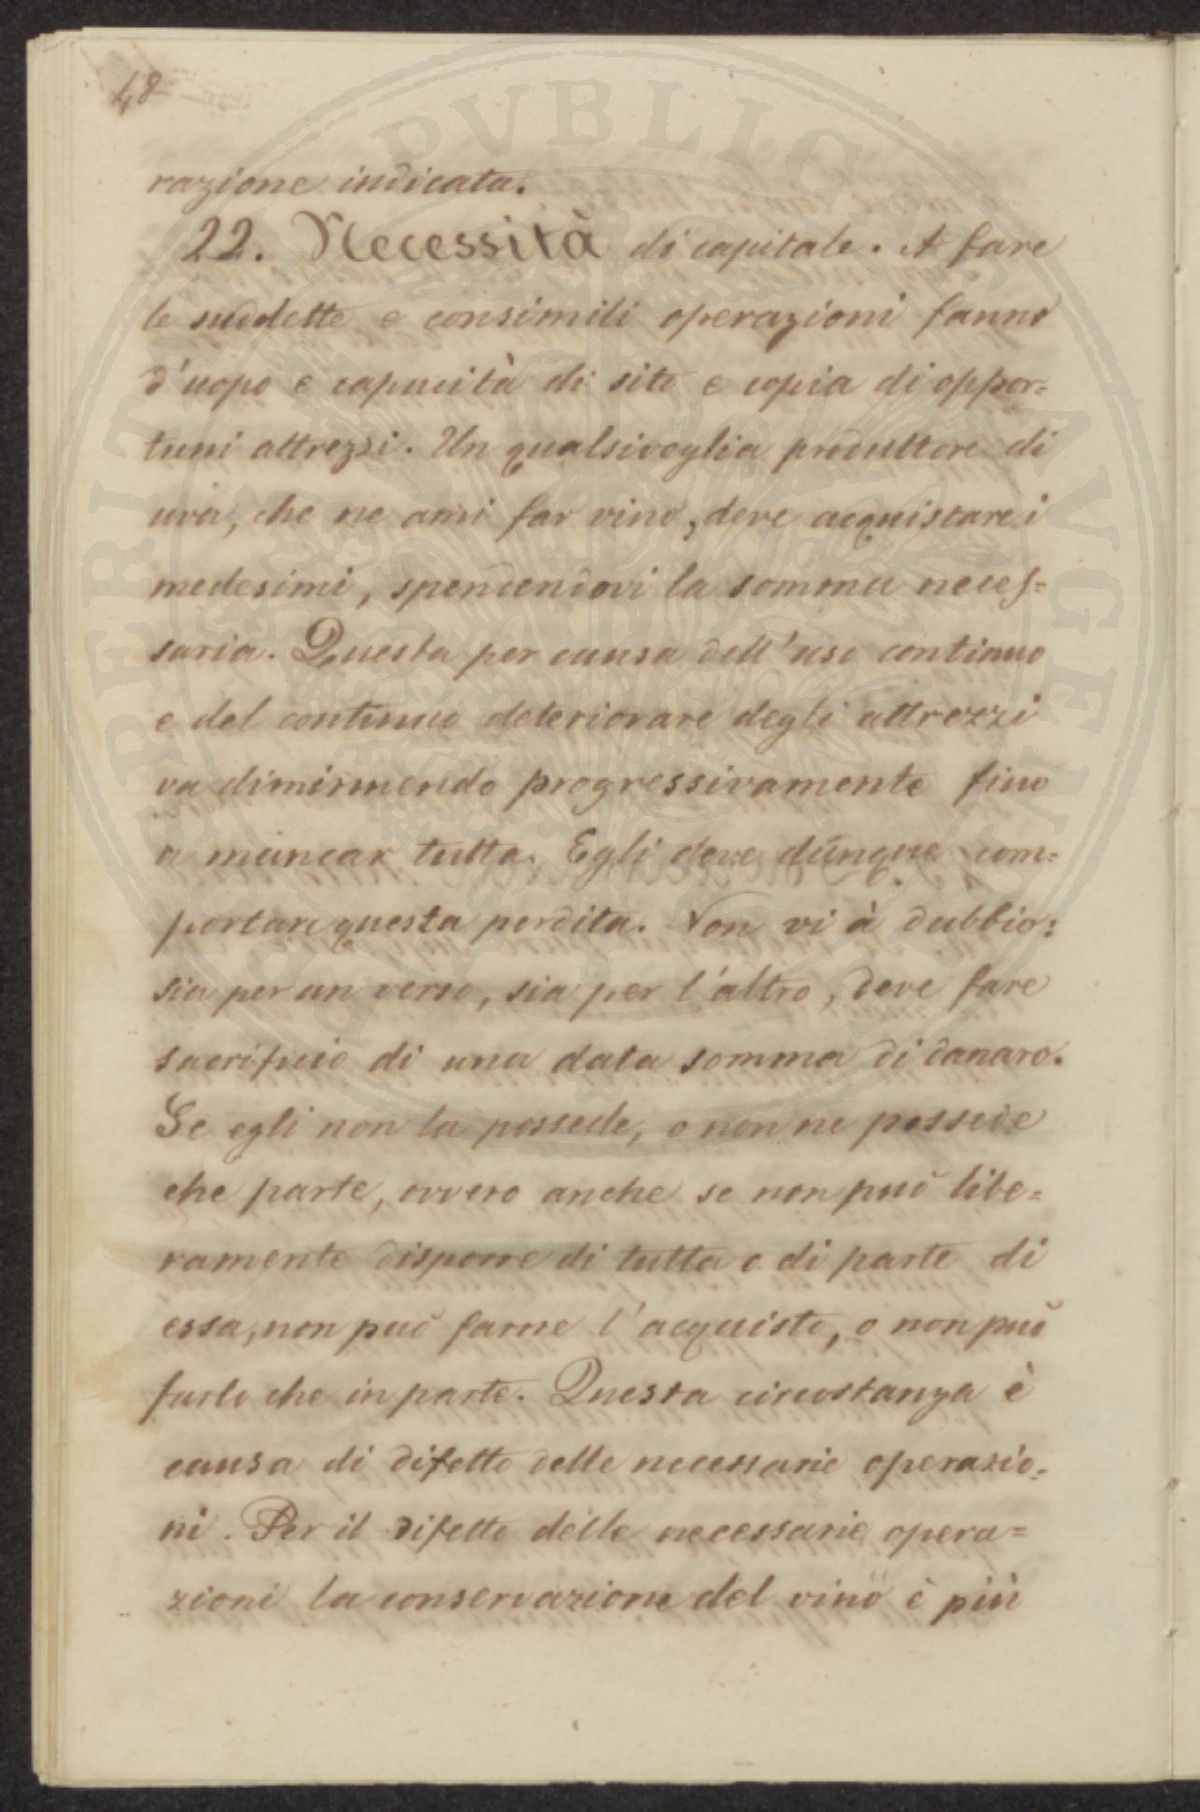 48
razione indicata.
22. Necessità di capitale. A fare
le suddette e consimili operazioni fanno
d'uopo e capacità di sito e copia di oppor=
tuni attrezzi. Un qualsivoglia produttore di
uva, che ne ami far vino, deve acquistare i
medesimi, spendendovi la somma neces=
saria. Questa per causa dell'uso continuo
e del continuo deteriorare degli attrezzi
va diminuendo progressivamente fino
a mancar tutta. Egli deve dunque com=
portare questa perdita. Non vi à dubbio:
sia per un verso, sia per l'altro, deve fare
sacrificio di una data somma di danaro.
Se egli non la possede, o non ne possede
che parte, ovvero anche se non può libe=
ramente disporre di tutta o di parte di
essa, non può farne l'acquisto, o non può
farlo che in parte. Questa circostanza è
causa di difetto delle necessarie operazio=
ni. Per il difetto delle necessarie opera=
zioni la conservazione del vino è più
PERITIA PVBLICA AVGENDAE